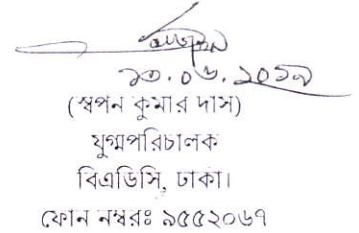 ১৩.০৬.২০১৯
(স্বপন কুমার দাস)
যুগ্মপরিচালক
বিএডিসি, ঢাকা।
ফোন নম্বরঃ ৯৫৫২০৬৭